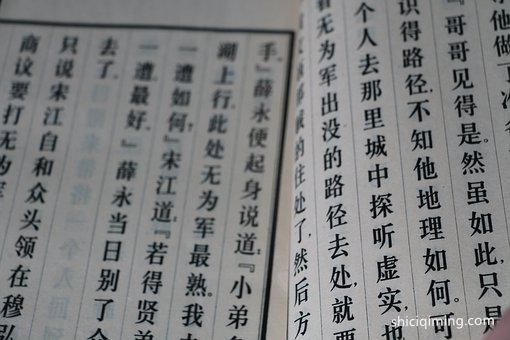 他做
『哥哥见得是。然虽如此，只是
识得路径，不知他地理如何。可
个人去那里城中探听虚实，也
看无为军出没的路径去处，就要
的住处了，然后方
手。』薛永便起身说道：『小弟多
湖上行，此处无为军最熟。我
一遭如何』宋江道：『若得贤弟
一遭，最好。』薛永当日别了
去了。
只说宋江自和众头领在穆弘
商议要打无为军
shiciqiming.com